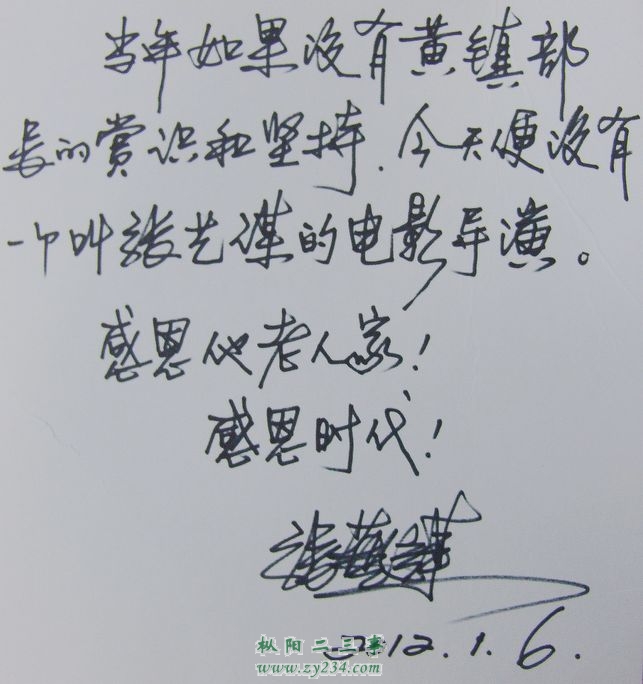 当年如果没有黄镇部
长的赏识和坚持,今天便没有
一个叫张艺谋的电影导演。
感恩他老人家!
感恩时代!
张艺谋
2012.1.6.
枞阳二三事
www.zy234.com